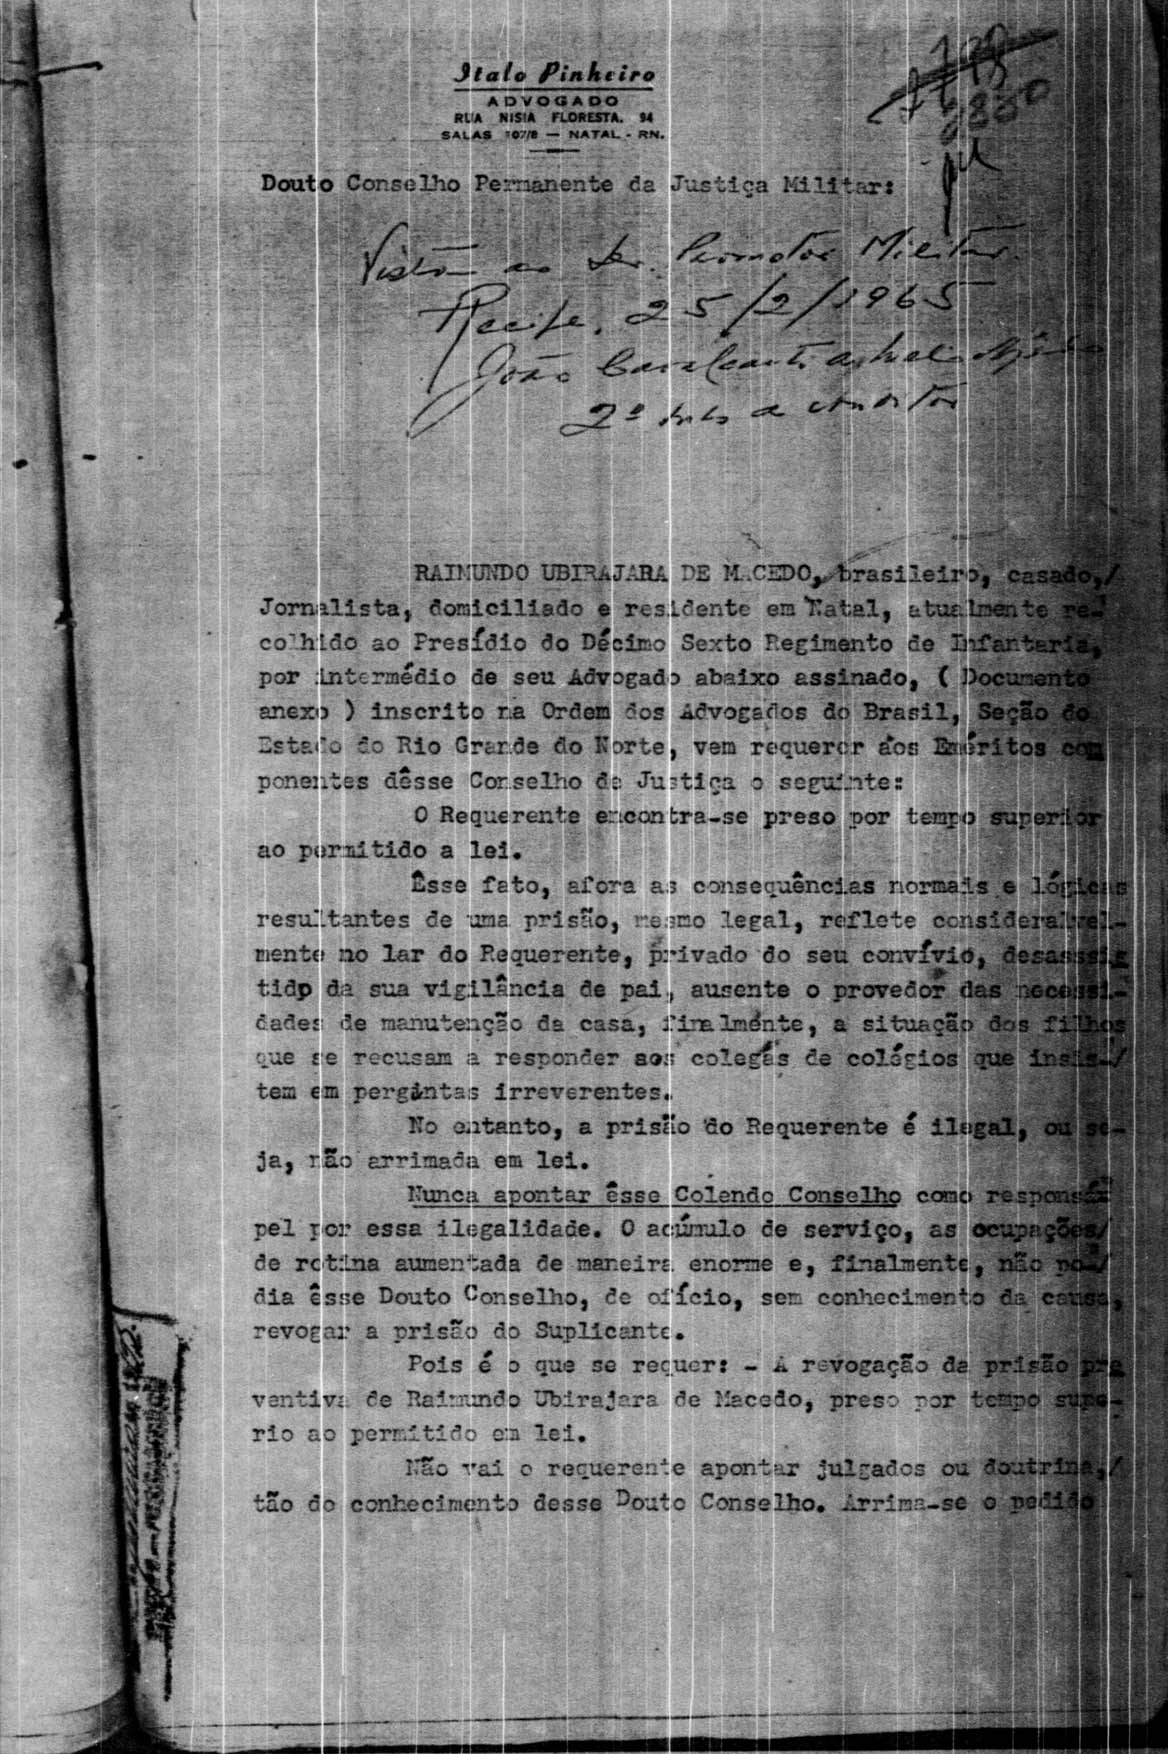 Italo Pinheiro
ADVOGADO
RUA NISIA FLORESTA, 94
SALAS 107/8 — NATAL - RN.
Douto Conselho Permanente da Justiça Militar:
Vista ao Dr. Promotor Militar.
Recife, 25/2/1965
João Cavalcanti
2º
RAIMUNDO UBIRAJARA DE MACEDO, brasileiro, casado,/
Jornalista, domiciliado e residente em Natal, atualmente re-
colhido ao Presídio do Décimo Sexto Regimento de Infantaria,
por intermédio de seu Advogado abaixo assinado, ( Documento
anexo ) inscrito na Ordem dos Advogados do Brasil, Seção do
Estado do Rio Grande do Norte, vem requerer aos Eméritos com
ponentes dêsse Conselho de Justiça o seguinte:
O Requerente encontra-se preso por tempo superior
ao permitido a lei.
Êsse fato, afora as consequências normais e lógicas
resultantes de uma prisão, mesmo legal, reflete consideravel-
mente no lar do Requerente, privado do seu convívio, desasssis
tidp da sua vigilância de pai, ausente o provedor das necessi-
dades de manutenção da casa, finalmente, a situação dos filhos
que se recusam a responder aos colegas de colégios que insis-/
tem em perguntas irreverentes.
No entanto, a prisão do Requerente é ilegal, ou se-
ja, não arrimada em lei.
Nunca apontar êsse Colendo Conselho como responsá
pel por essa ilegalidade. O acúmulo de serviço, as ocupações/
de rotina aumentada de maneira enorme e, finalmente, não po-/
dia êsse Douto Conselho, de ofício, sem conhecimento da causa,
revogar a prisão do Suplicante.
Pois é o que se requer: - A revogação da prisão pre
ventiva de Raimundo Ubirajara de Macedo, preso por tempo supe-
rio ao permitido em lei.
Não vai o requerente apontar julgados ou doutrina,/
tão do conhecimento desse Douto Conselho. Arrima-se o pedido